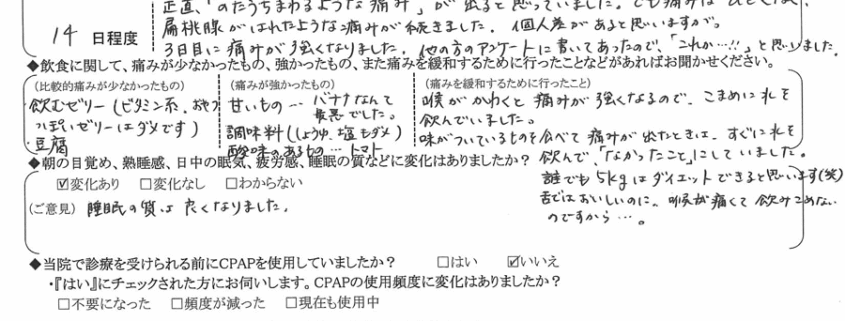 正直、「のたうちまわるような痛み」が出ると思っていました。でも痛みはひどくなく、
14 日程度
扁桃腺がはれたような痛みが続きました。個人差があると思いますが。
3日目に痛みが強くなりました。他の方のアンケートに書いてあったので、「これか…!!」と思いました。
◆飲食に関して、痛みが少なかったもの、強かったもの、また痛みを緩和するために行ったことなどがあればお聞かせください。
(比較的痛みが少なかったもの)
飲むゼリー(ビタミン系.おやつ
っぽいゼリーはダメです)
・豆腐
(痛みが強かったもの)
甘いもの… バナナなんて
最悪でした。
調味料(しょうゆ、塩もダメ)
酸味のあるもの… トマト
(痛みを緩和するために行ったこと)
喉がかわくと痛みが強くなるので、こまめに水を
飲んでいました。
味がついているものを食べて痛みが出たときは、すぐに水を
飲んで、「なかったこと」にしていました。
誰でも5kgはダイエットできると思います(笑)
舌ではおいしいのに、喉が痛くて飲みこめない
のですから…。
◆朝の目覚め、熟睡感、日中の眠気、疲労感、睡眠の質などに変化はありましたか?
☑変化あり □変化なし □わからない
(ご意見) 睡眠の質は良くなりました。
◆当院で診療を受けられる前にCPAPを使用していましたか? □はい ☑いいえ
・『はい』にチェックされた方にお伺いします。CPAPの使用頻度に変化はありましたか?
□不要になった □頻度が減った □現在も使用中